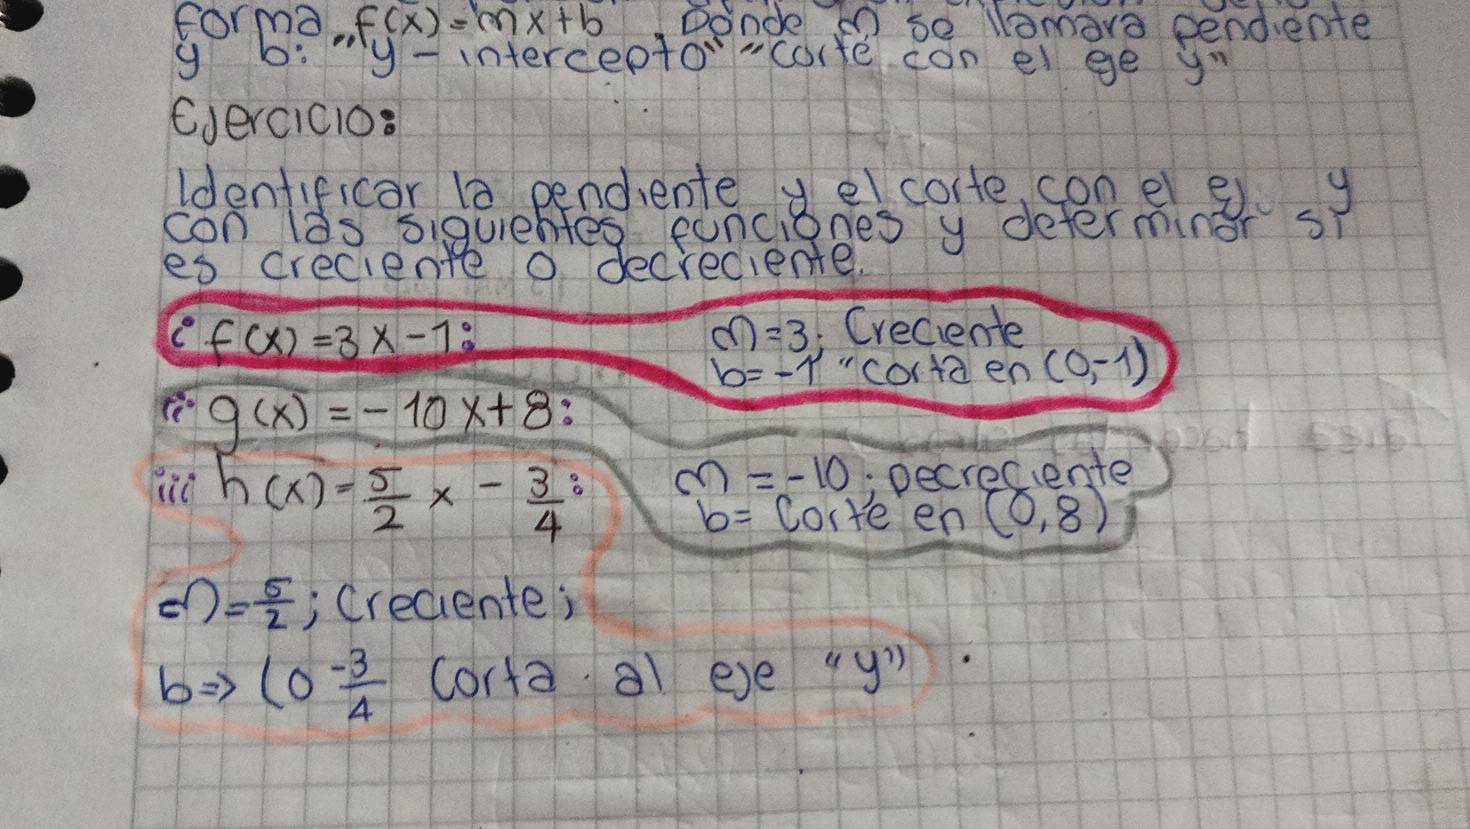 forma „f(x)=mx+b . Donde m se llamara pendiente
y b: "y-intercepto" "corte con el eje y"
Ejercicio:
Identificar la pendiente y el corte con el ej. y
con las siguientes funciones y determinar si
es creciente o decreciente.
i f(x)=3x-1: m=3; Creciente
b=-1 "corta en (0,-1)
ii g(x)=-10x+8:
m=-10; Decreciente
b= Corte en (0,8)
iii h(x)=5/2 x - 3/4:
m=5/2; Creciente;
b=> (0 -3/4 Corta al eje "y"